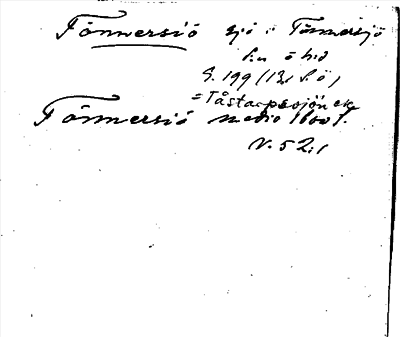 Tönnersiö sjö i Tönnersjö
sn ö hd
S. 199 (131 SÖ)
= Tåstarpssjön ek
Tönnersiö medio 1600 t.
V. 52:1